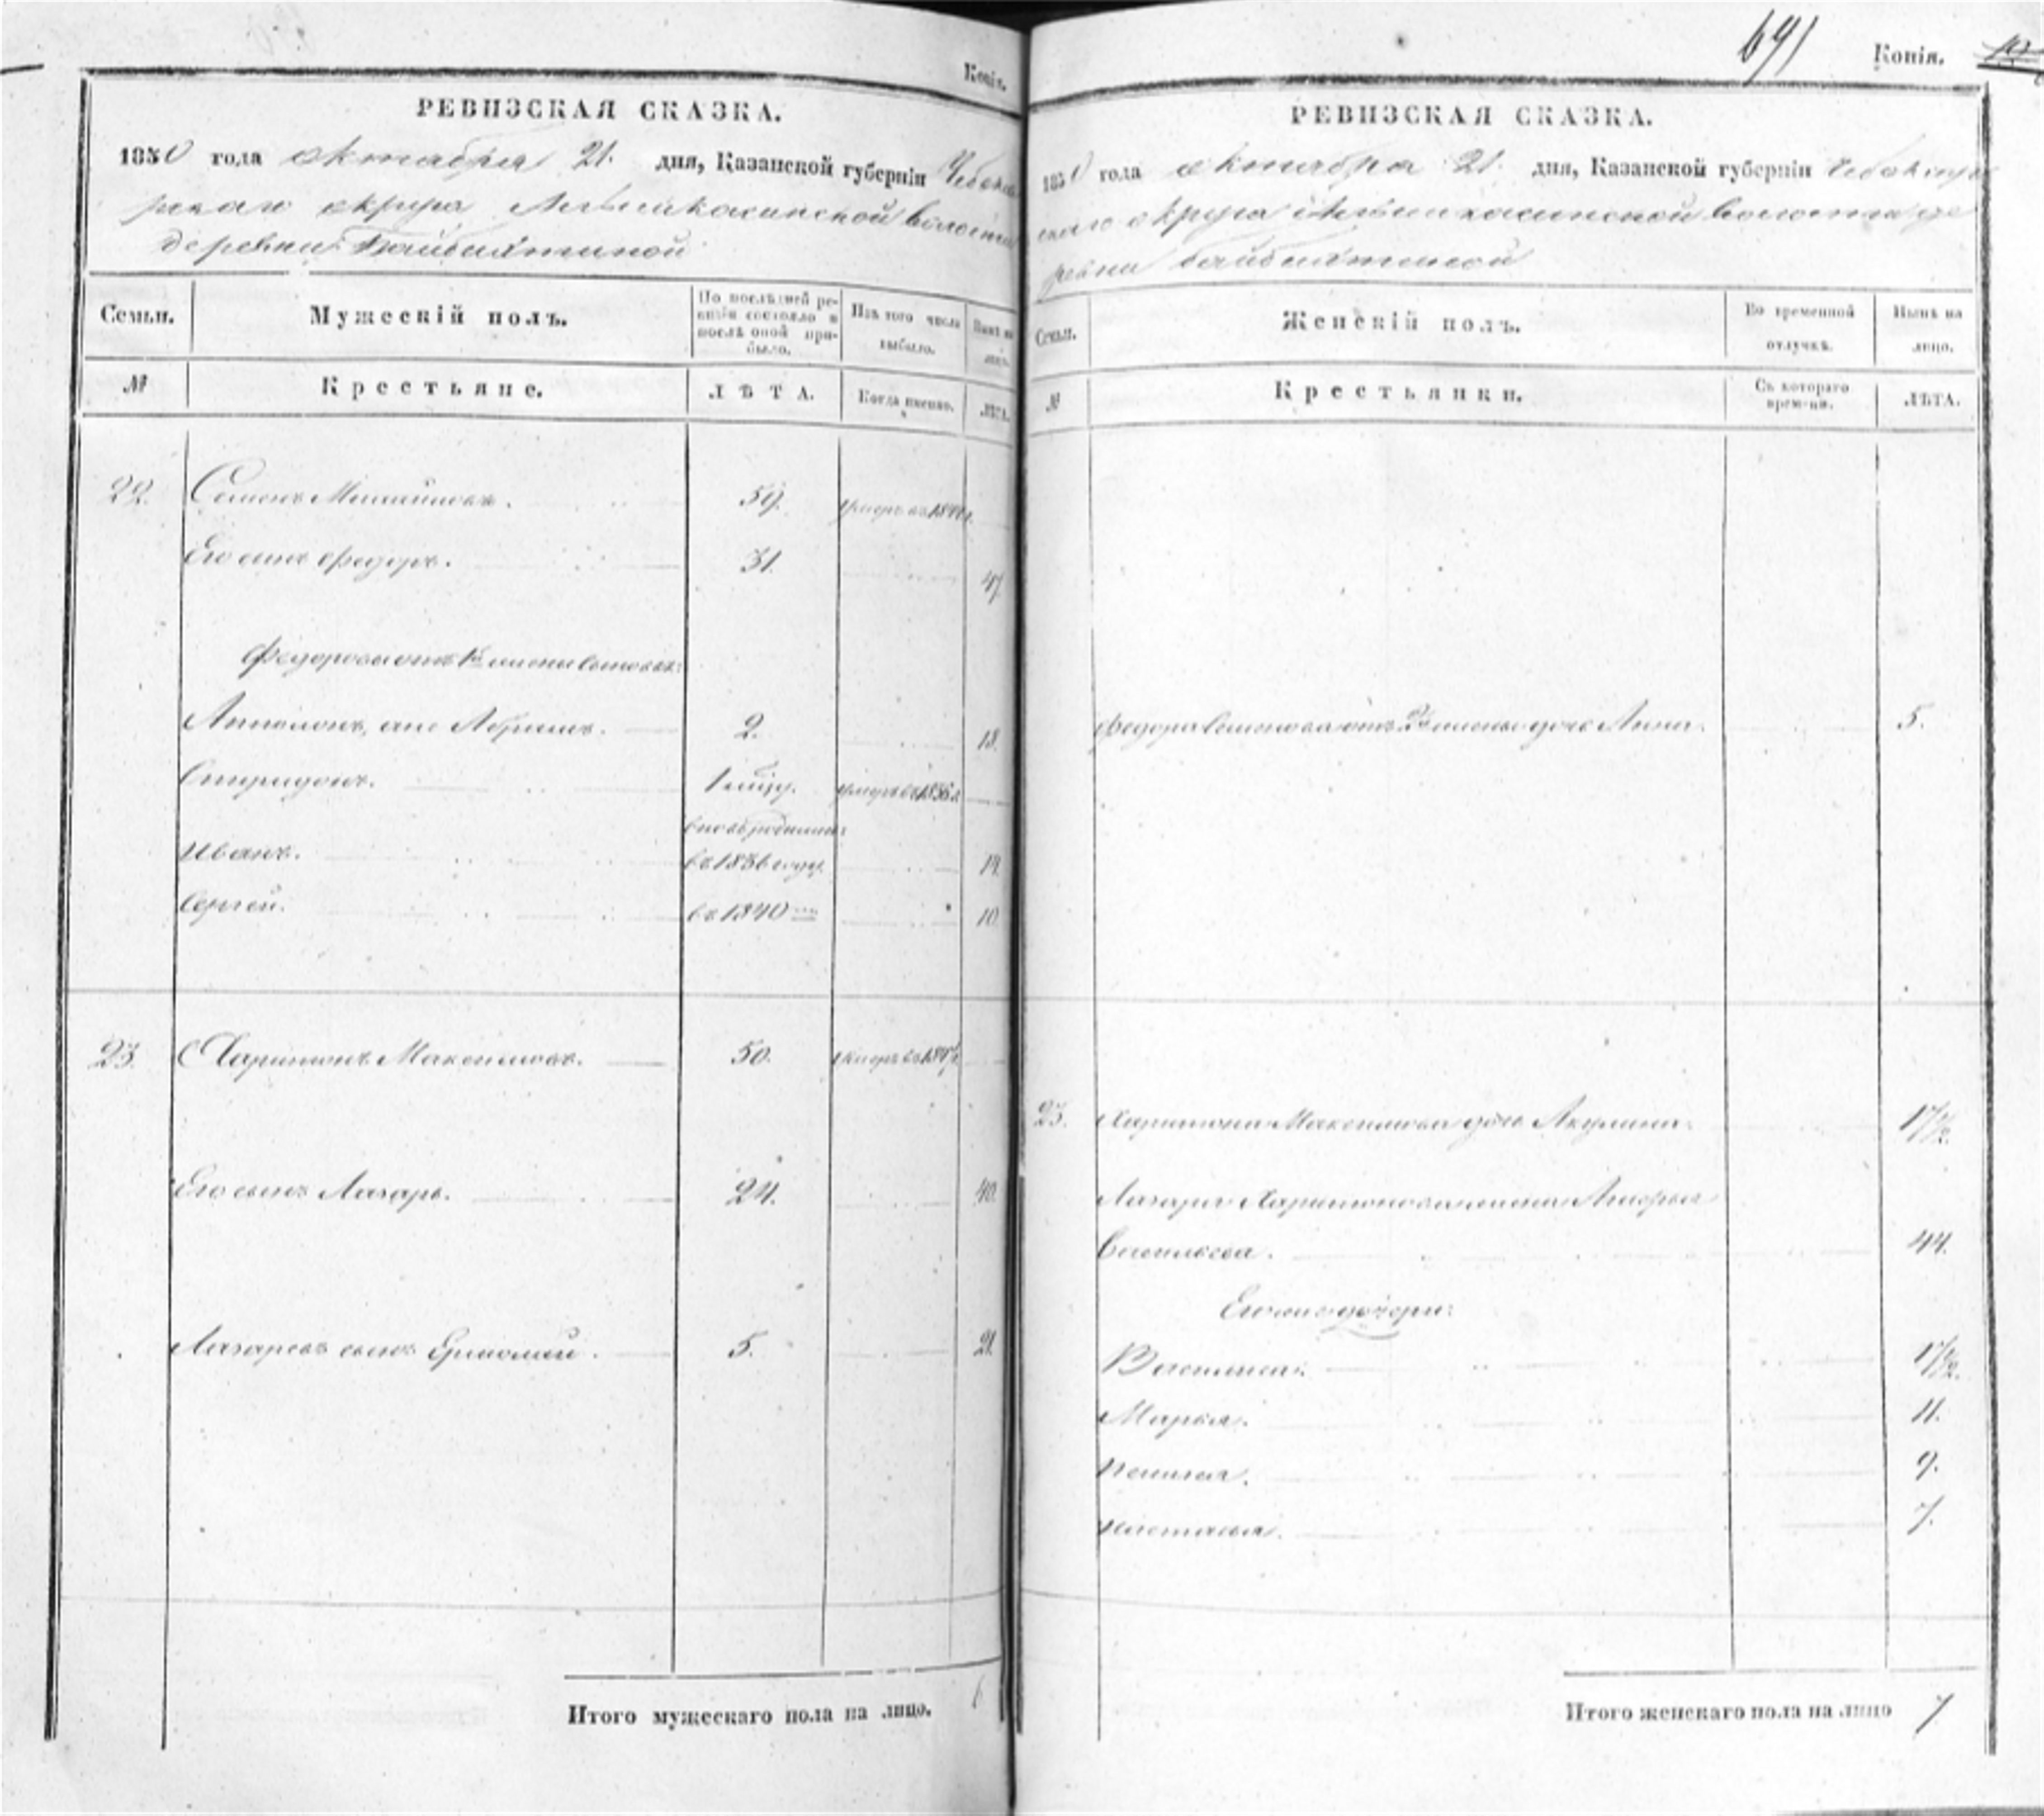 Копія.
РЕВИЗСКАЯ СКАЗКА.
1850 года октября 21. дня, Казанской губерніи Чебокса
рскаго округа волости
деревни Байбахтиной
Семьи.
Мужескій полъ.
По послѣдней ре-
визіи состояло и
послѣ оной при-
было.
Изъ того числа
выбыло.
Нынѣ на
лицо.
№
Крестьяне.
ЛѢТА.
Когда именно.
ЛѢТА.
22. Семенъ 59. умеръ въ
Его сынъ Федоръ. 31. 47
Федоровы отъ 1й жены сыновья:
Апполонъ, онъ Абрамъ. 2. 18.
Спиридонъ. 1 умеръ въ 1836 г.
вновь рожденъ
Иванъ. въ 1836 году 14.
Сергей. въ 1840 10.
23. Харитонъ Максимовъ. 50. умеръ въ
Его сынъ Лазарь. 24. 40.
Лазаревъ сынъ Ермолай. 5. 21.
Итого мужескаго пола на лицо. 6
691
Копія.
РЕВИЗСКАЯ СКАЗКА.
1850 года октября 21. дня, Казанской губерніи Чебоксар
скаго округа волости де
ревни Байбахтиной
Семьи.
Женскій полъ.
Во временной
отлучкѣ.
Нынѣ на
лицо.
№
Крестьянки.
Съ котораго
времени.
ЛѢТА.
Федора Семенова отъ 2й жены дочь Анна. 5.
23. Харитона Максимова дочь Акулина. 17½
Лазаря Харитонова жена
Васильева. 44.
Его же дочери:
Василиса. 17½
Марья. 11.
9.
Настасья. 7.
Итого женскаго пола на лицо 7